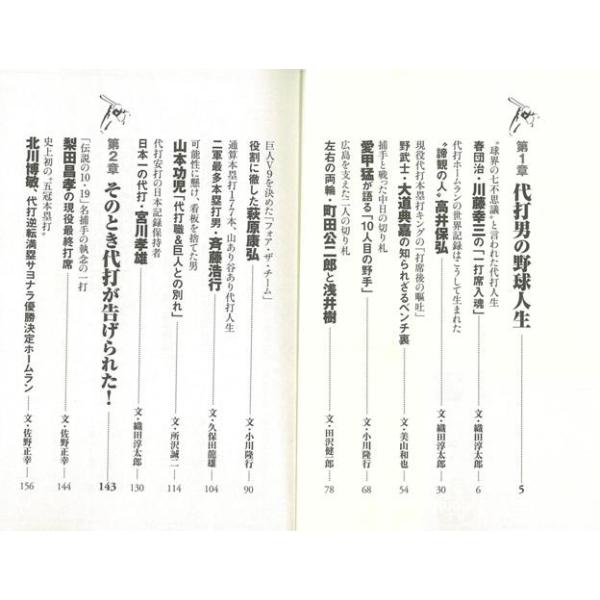 第1章 代打男の野球人生 5
“球界の七不思議”と言われた代打人生
春団治・川藤幸三の「一打席入魂」 文・織田淳太郎 6
代打ホームランの世界記録はこうして生まれた
“諦観の人”高井保弘 文・織田淳太郎 30
現役代打本塁打キングの「一打席後の嘔吐」
野武士・大道典嘉の知られざるベンチ裏 文・美山和也 54
捕手と戦った中日の切り札
愛甲猛が語る「10人目の野手」 文・小川隆行 68
広島を支えた二人の切り札
左右の両輪・町田公二郎と浅井樹 文・田沢健一郎 78
巨人V9を決めた「フォア・ザ・チーム」
役割に徹した萩原康弘 文・小川隆行 90
通算本塁打177本、山あり谷あり代打人生
二軍最多本塁打男・斉藤浩行 文・久保田龍雄 104
可能性に懸け、看板を捨てた男
山本功児「代打職&巨人との別れ」 文・所沢誠二 114
代打安打の日本記録保持者
日本一の代打・宮川孝雄 文・織田淳太郎 130
第2章 そのとき代打が告げられた! 143
「伝説の10・19」名捕手の執念の一打
梨田昌孝の現役最終打席 文・佐野正幸 144
史上初の“五冠本塁打”
北川博敏、代打逆転満塁サヨナラ優勝決定ホームラン 文・佐野正幸 156